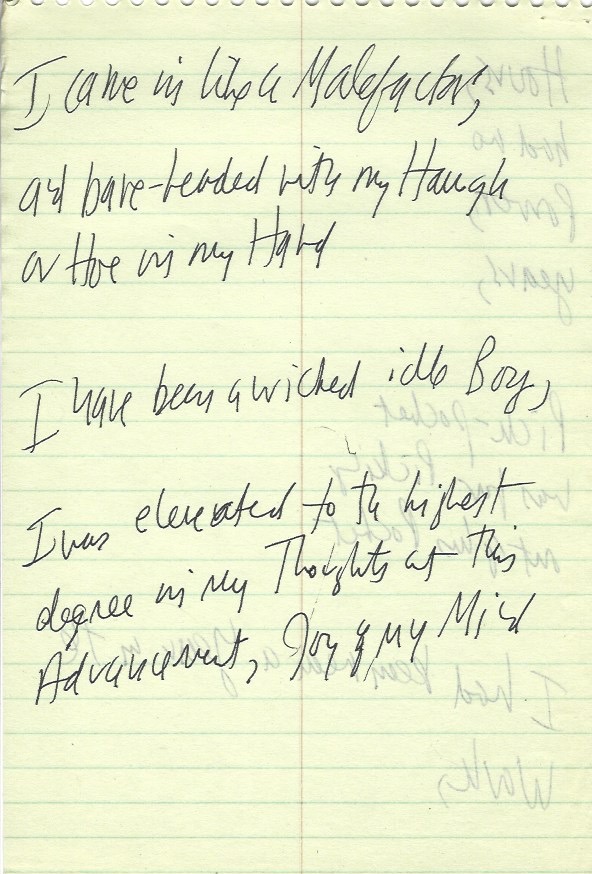 I, came in like a Malefactor,
and bare-headed with my Haugh
or Hoe in my Hand
I have been a wicked idle Boy,
I was elevated to the highest
degree in my Thoughts at this
Advancement, Joy of my Mind